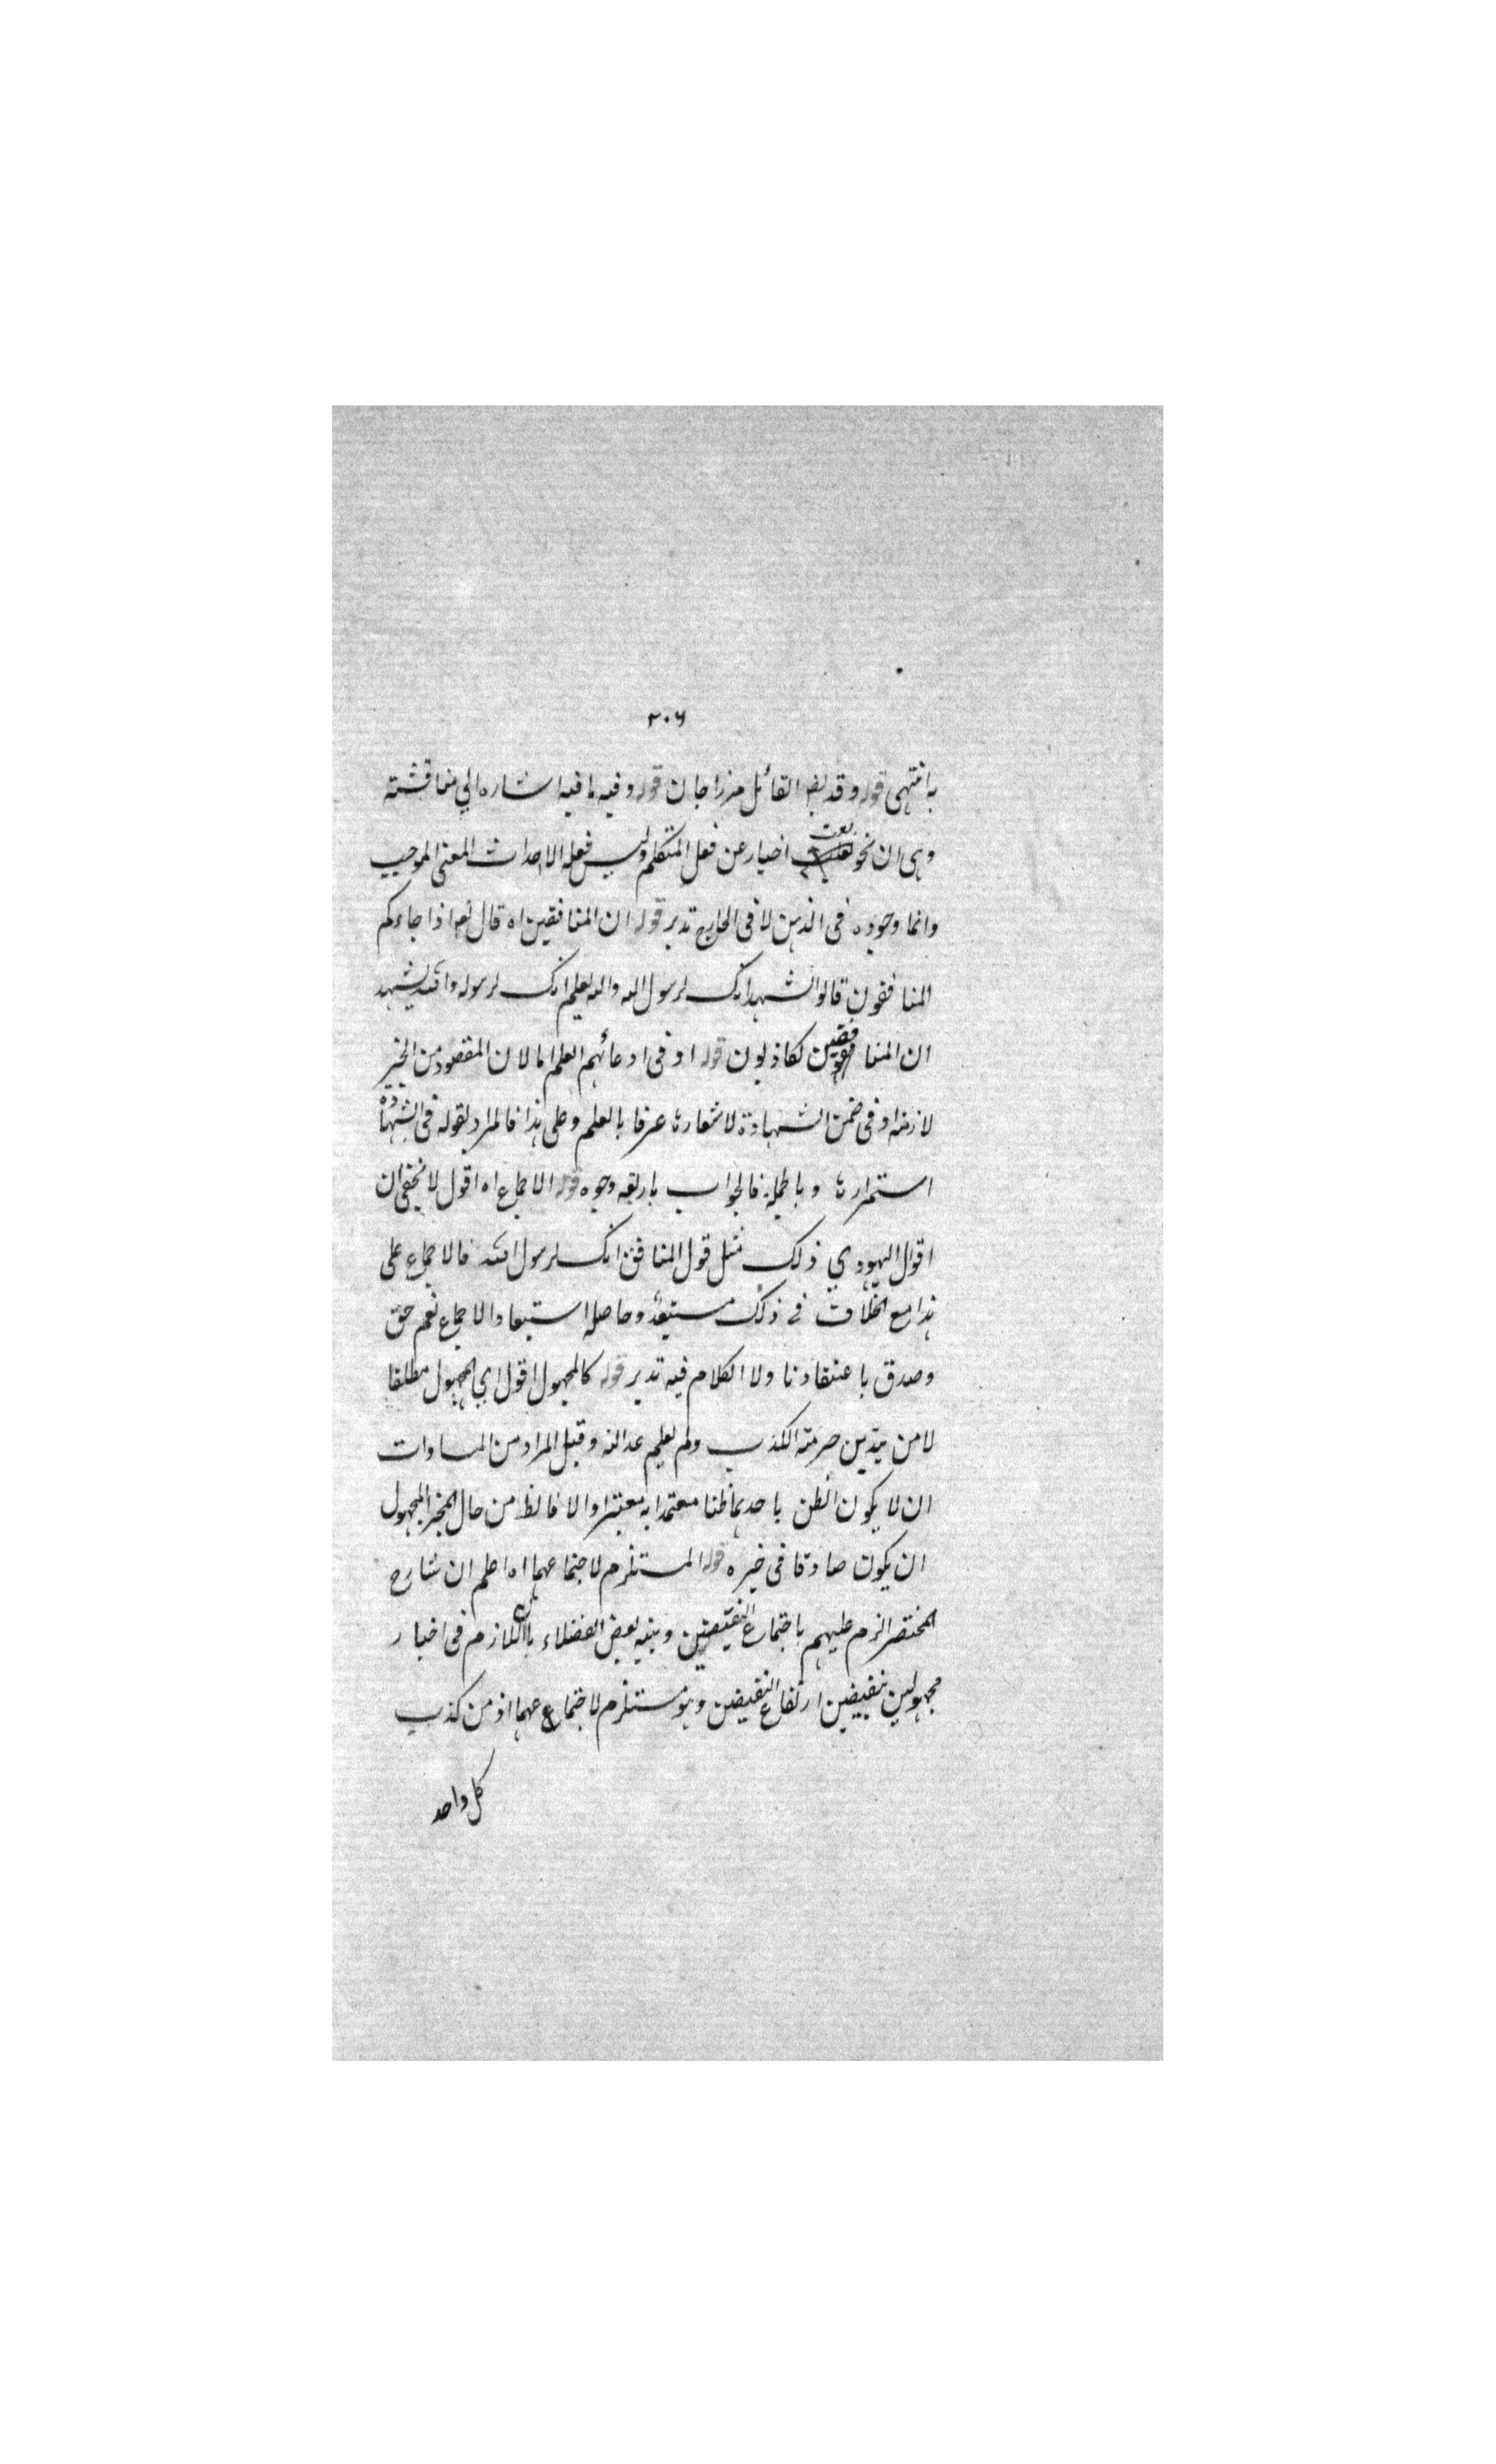 ٢٠٦
به انتهى قوله وقد يض القائل مرزا جان قوله وفيه ما فيه اشاره الي مناقشته
وهى ان نحو بعت اخبار عن فعل المتكلم وليس فعله الا احداث المعنى الموجب
وانما وجوده فى الذهن لا فى الخارج تدبر قوله ان المنافقين اه قال تعم اذا جاءكم
المنافقون قالوا نشهد انك لرسول الله والله يعلم انك لرسوله والله يشهد
ان المنافقين لكاذبون قوله او فى ادعائهم العلم اما لان المقصود من الخبر
لازمه او فى ضمن الشهادة لاشعارها عرفا بالعلم وعلى هذا فالمراد بقوله فى الشهادة
استمرارها وبالجملة فالجواب باربعه وجوه قوله الاجماع اه اقول لا يخفى ان
اقوال اليهودي ذلك مثل قول المنافق انك لرسول الله فالاجماع على
هذا مع الخلاف فى ذلك مستبعد وحاصله استبعاد الاجماع نعم حق
وصدق باعتقادنا ولا الكلام فيه تدبر قوله كالمجهول اقول اي المجهول مطلقا
لا من يتدين حرمته الكذب ولم يعلم عدالته وقيل المراد من المساوات
ان لا يكون الظن باحدهما ظنا معتمدا به معتبرا والا فالظ من حال المخبر المجهول
ان يكون صادقا فى خبره قوله المستلزم لاجتماعهما اه اعلم ان شارح
المختصر الزم عليهم باجتماع النقيضين وبينه بعض الفضلاء بان اللازم فى اخبار
مجهولين بنقيضين ارتفاع النقيضين وهو مستلزم لاجتماعهما اذ من كذب
كل واحد